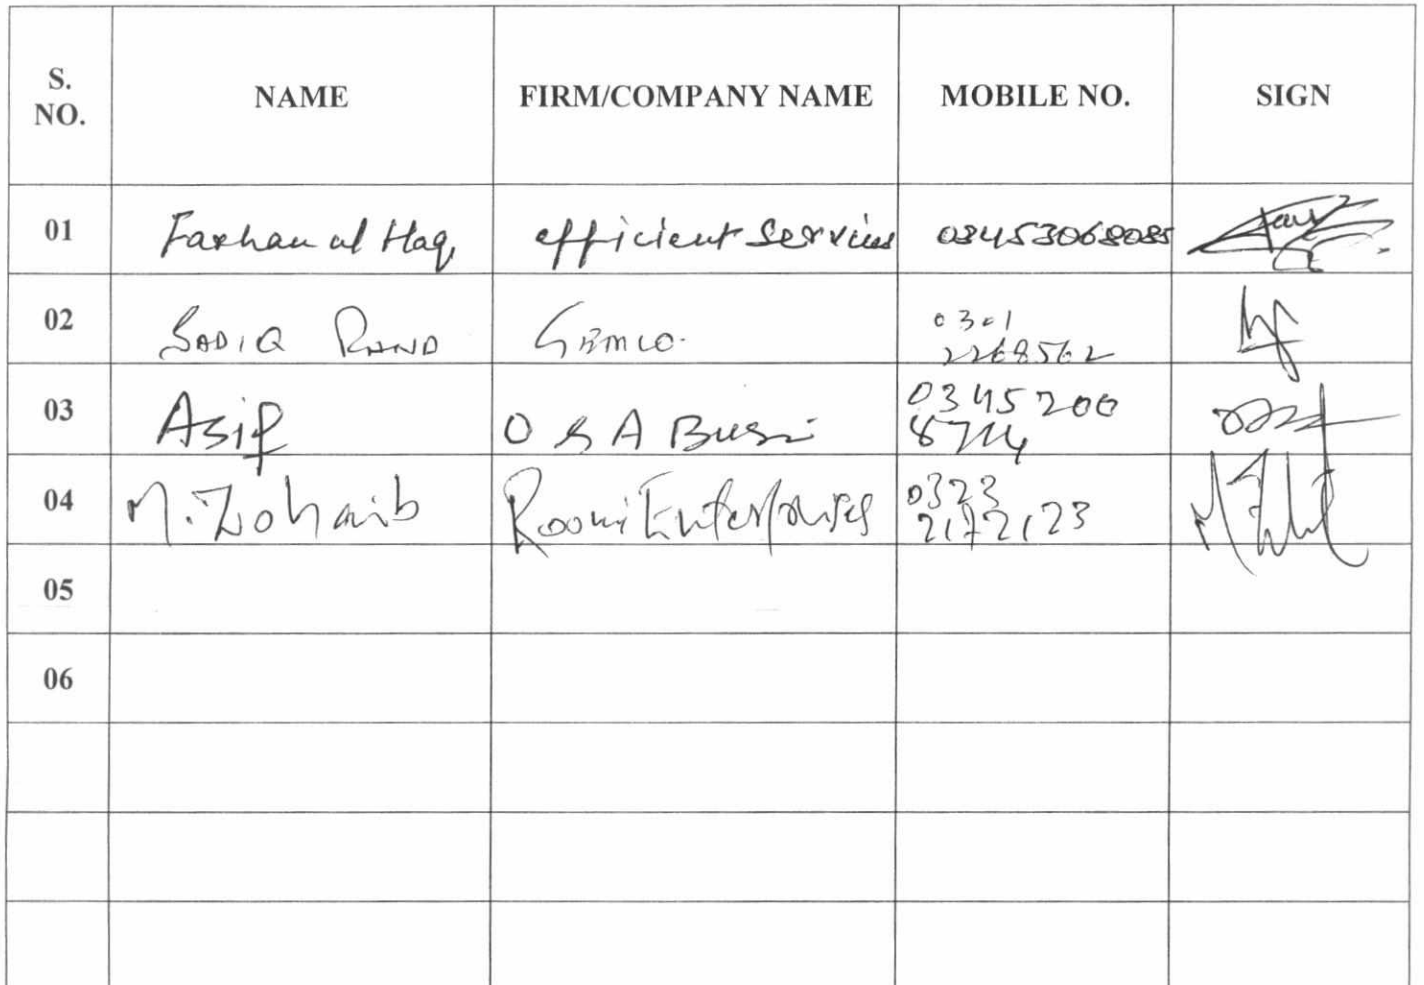 S. NO. NAME FIRM/COMPANY NAME MOBILE NO. SIGN
01 Farhan ul Haq efficient services 03453068085
02 SADIQ RAND GEMCO. 0301
2268562
03 Asif O S A Busi 0345200
8714
04 M. Zohaib Roomi Enterprises 0323
2172123
05
06